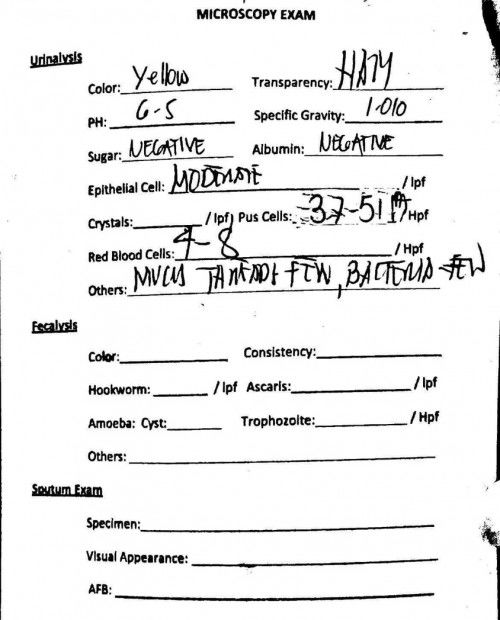 MICROSCOPY EXAM
Urinalysis
Color: Yellow Transparency: HAZY
PH: 6-5 Specific Gravity: 1-010
Sugar: NEGATIVE Albumin: NEGATIVE
Epithelial Cell: MODERATE / lpf
Crystals: / lpf Pus Cells: 37-51 / Hpf
Red Blood Cells: 4-8 / Hpf
Others: MUCUS THREADS FEW, BACTERIA FEW
Fecalysis
Color: Consistency:
Hookworm: / lpf Ascaris: / lpf
Amoeba: Cyst: Trophozoite: / Hpf
Others:
Sputum Exam
Specimen:
Visual Appearance:
AFB: